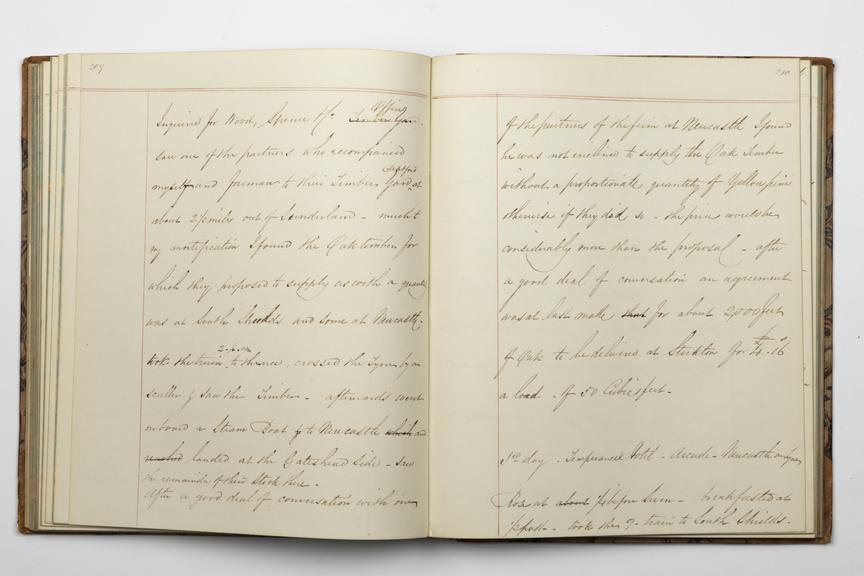 209
Inquired for Wood, Spence & Co Office
Timber Yard.
saw one of the partners who accompanied
myself and foreman to their Timber Yard, at
about 2½ miles out of Sunderland - much to
my mortification I found the Oak timber for
which they proposed to supply us with a quantity
was at South Shields and some at Newcastle.
2. p.m
took the train to thence, crossed the Tyne by a
sculler & saw the Timber - afterwards went
on board a Steam Boat & to Newcastle which and
reached landed at the Gateshead Side - saw
the remainder of their Stock here -
After a good deal of conversation with one
210
of the partners of the firm at Newcastle I found
he was not inclined to supply the Oak Timber
without a proportionate quantity of Yellow pine
otherwise if they did so - the price would be
considerably more than the proposal - after
a good deal of conversation an agreement
was at last made that for about 2,000 feet
of Oak to be delivered at Stockton for £4-16
a load - of 50 Cubic feet -
3rd day - Temperance Hotel - Arcade - Newcastle on Tyne
Rose at about ½ before Seven - breakfasted at
½ past - took the 9. train to South Shields.